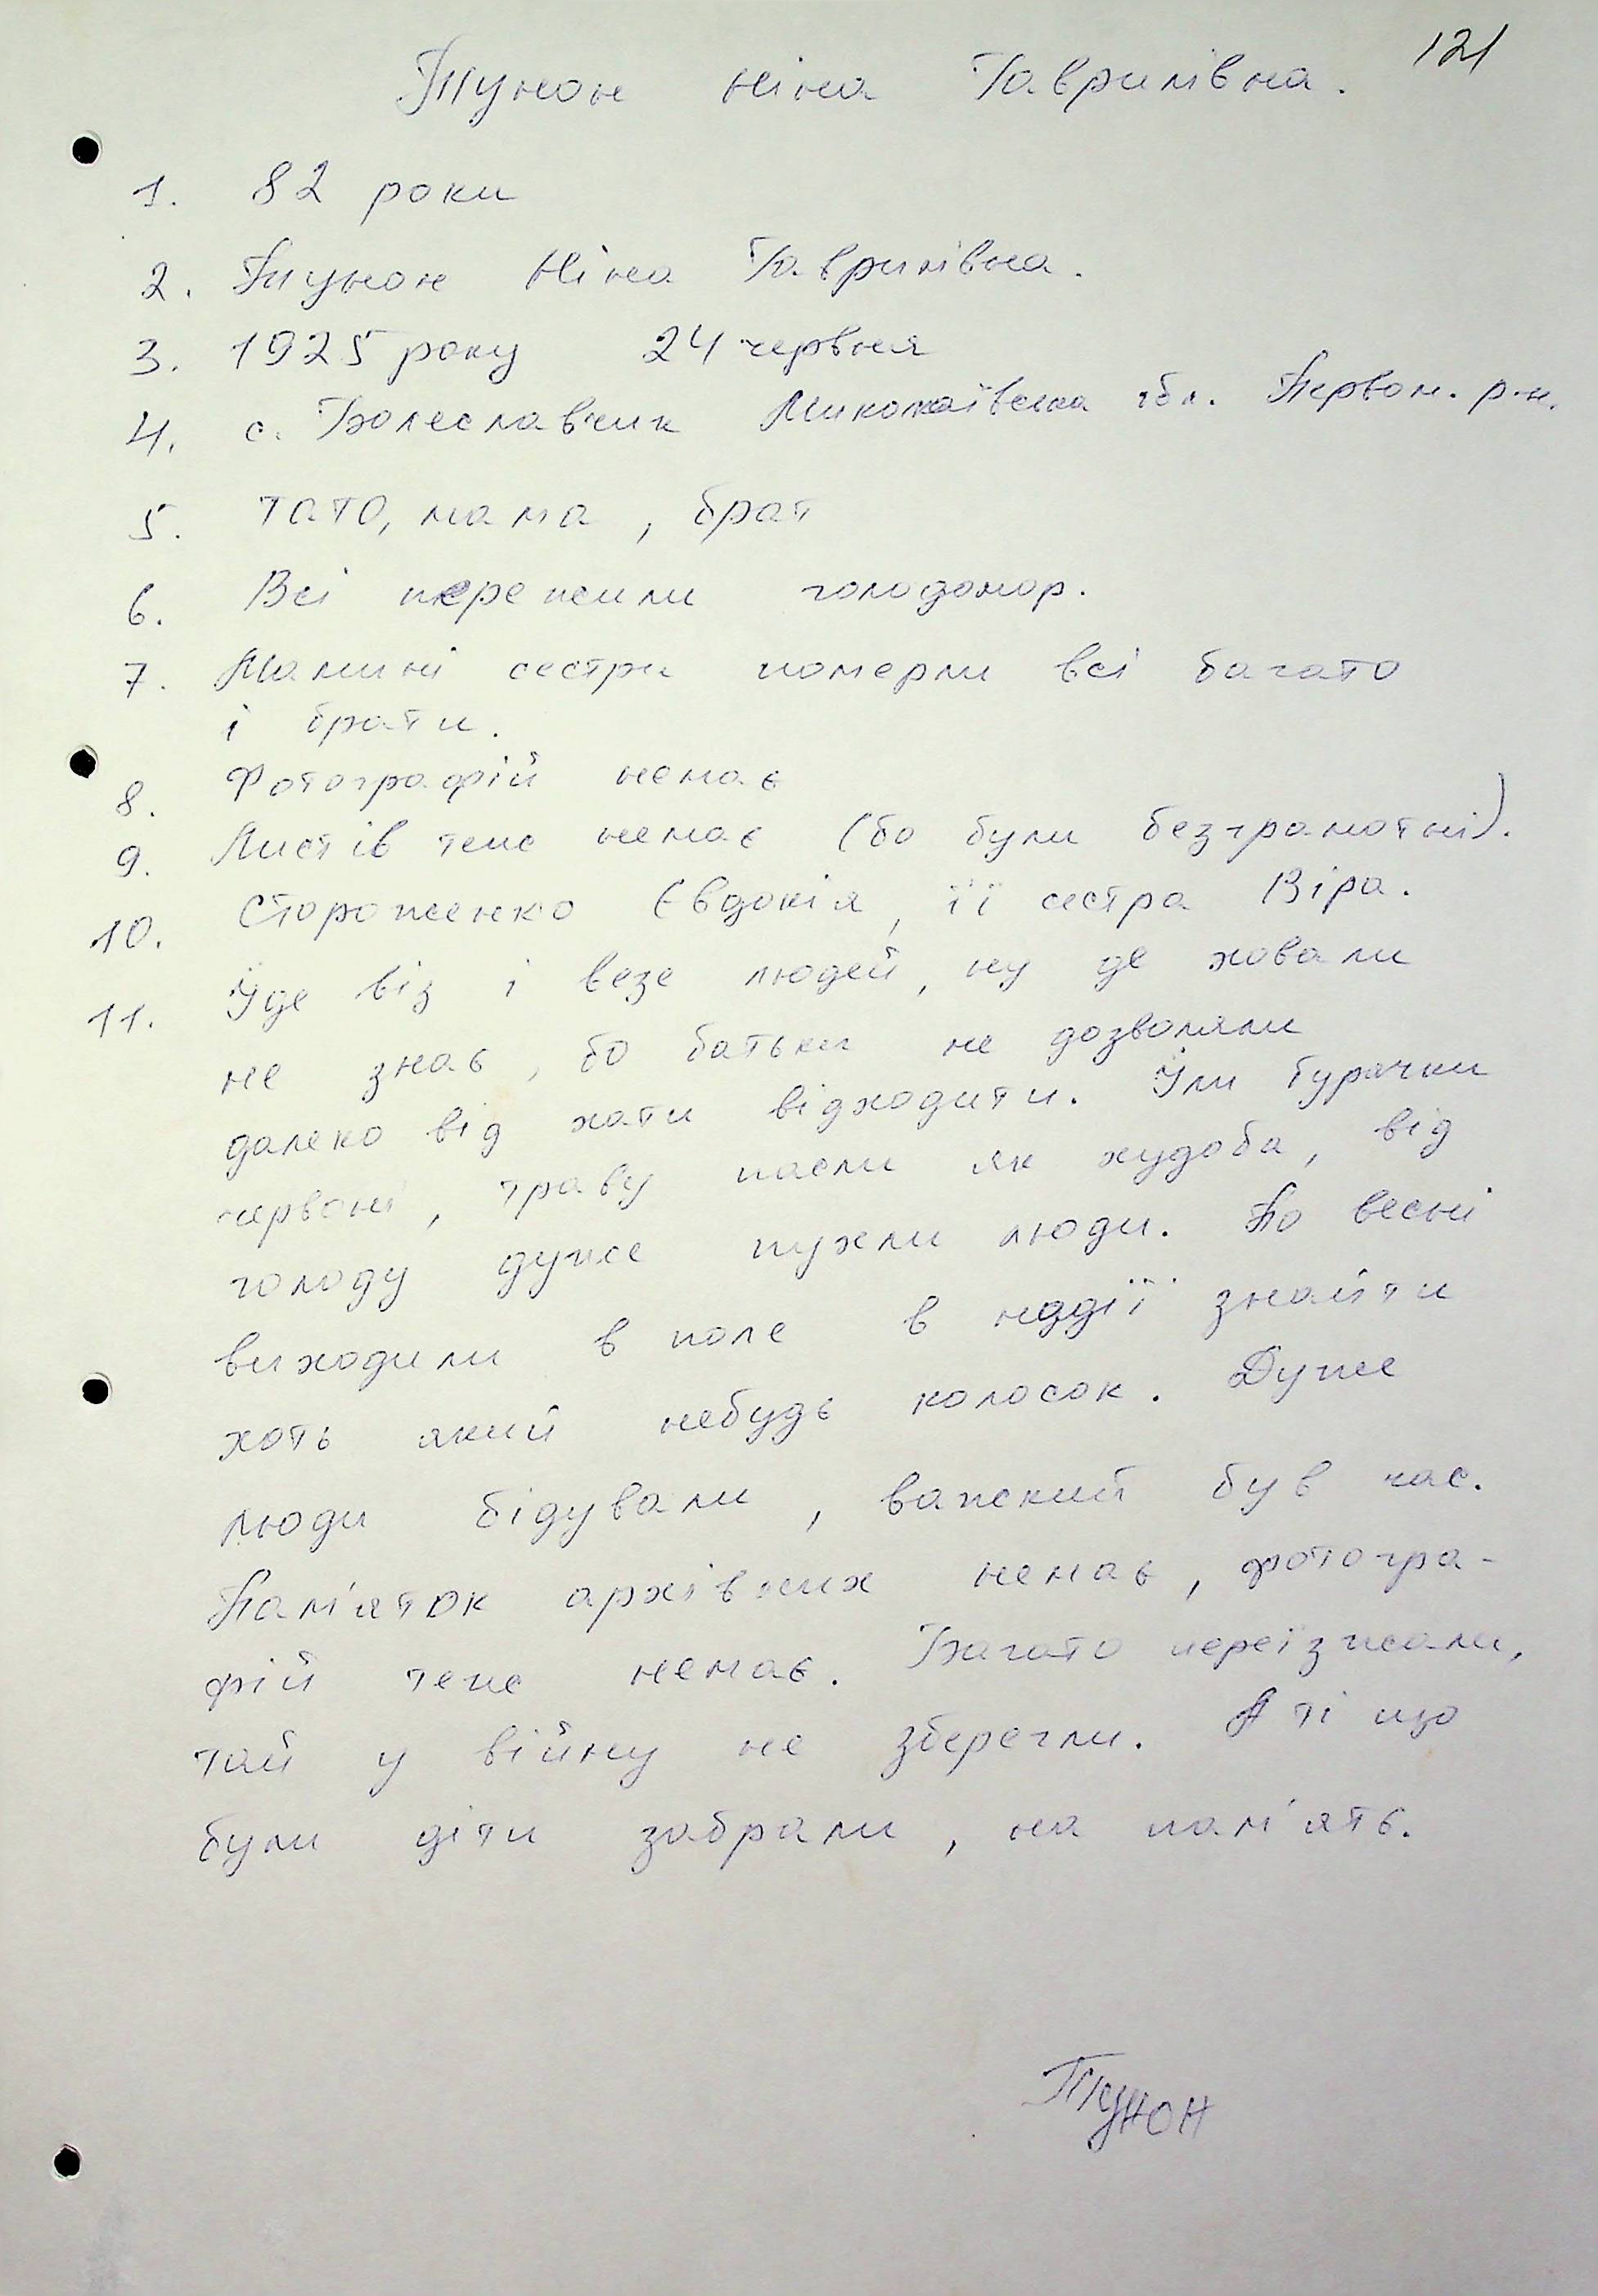 121
Тунон Ніна Гаврилівна.
1. 82 роки
2. Тунон Ніна Гаврилівна.
3. 1925 року 24 червня
4. с. Болеславчик Миколаївська обл. Первом. р-н.
5. тато, мама, брат
6. Всі пережили голодомор.
7. Мамині сестри померли всі багато
і брати.
8. Фотографій немає
9. Листів теж немає (бо були безграмотні).
10. Стороженко Євдокія, її сестра Віра.
11. Йде віз і везе людей, ну де ховали
не знає, бо батьки не дозволяли
далеко від хати відходити. Їли бурячки
червоні, траву пасли як худоба, від
голоду дуже пухли люди. По весні
виходили в поле в надії знайти
хоть який небудь колосок. Дуже
люди бідували, важкий був час.
Пам'яток архівних немає, фотогра-
фій теж немає. Багато переїзжали,
тай у війну не зберегли. А ті що
були діти забрали, на пам'ять.
Тунон